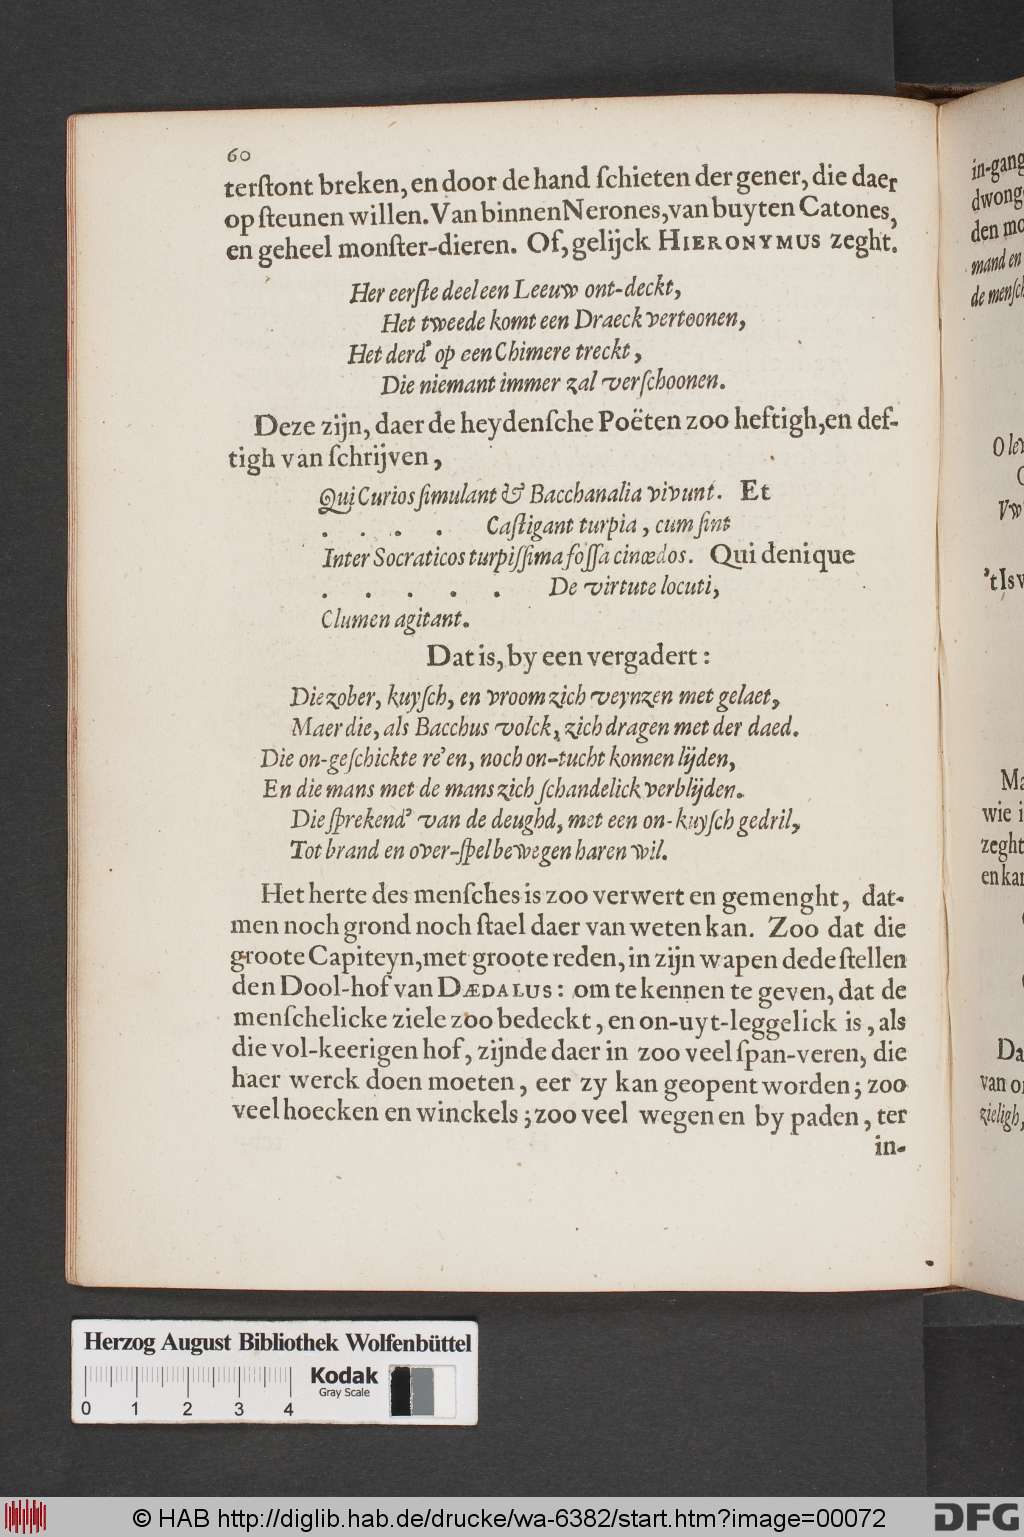 60
terſtont breken, en door de hand ſchieten der gener, die daer
op ſteunen willen. Van binnen Nerones, van buyten Catones,
en geheel monſter-dieren. Of, gelijck HIERONYMUS zeght.
Her eerſte deel een Leeuw ont-deckt,
Het tweede komt een Draeck vertoonen,
Het derd' op een Chimere treckt,
Die niemant immer zal verſchoonen.
Deze zijn, daer de heydenſche Poëten zoo heftigh, en def-
tigh van ſchrijven,
Qui Curios ſimulant & Bacchanalia vivunt. Et
. . . . Caſtigant turpia, cum ſint
Inter Socraticos turpiſſima foſſa cinœdos. Qui denique
. . . . . De virtute locuti,
Clumen agitant.
Dat is, by een vergadert:
Die zober, kuyſch, en vroom zich veynzen met gelaet,
Maer die, als Bacchus volck, zich dragen met der daed.
Die on-geſchickte re'en, noch on-tucht konnen lijden,
En die mans met de mans zich ſchandelick verblijden.
Die ſprekend' van de deughd, met een on-kuyſch gedril,
Tot brand en over-ſpel bewegen haren wil.
Het herte des menſches is zoo verwert en gemenght, dat-
men noch grond noch ſtael daer van weten kan. Zoo dat die
groote Capiteyn, met groote reden, in zijn wapen dede ſtellen
den Dool-hof van DÆDALUS: om te kennen te geven, dat de
menſchelicke ziele zoo bedeckt, en on-uyt-leggelick is, als
die vol-keerigen hof, zijnde daer in zoo veel ſpan-veren, die
haer werck doen moeten, eer zy kan geopent worden; zoo
veel hoecken en winckels; zoo veel wegen en by paden, ter
in-
in-gang
dwong
den mo
mand en
de menſch
't Is v
Ma
wie i
zeght
en kan
Da
van o
zieligh,
Herzog August Bibliothek Wolfenbüttel
Kodak
Gray Scale
0 1 2 3 4
© HAB http://diglib.hab.de/drucke/wa-6382/start.htm?image=00072
DFG